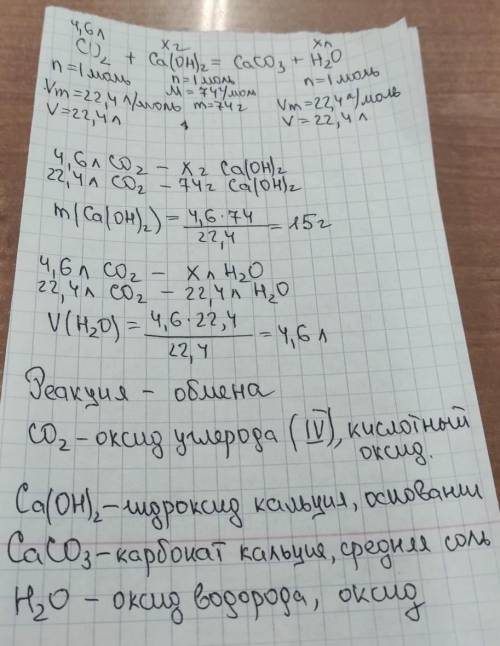 4,6л
x г
x л
CO₂ + Ca(OH)₂ = CaCO₃ + H₂O
n=1моль n=1моль n=1моль
Vm=22,4л/моль M=74г/моль Vm=22,4л/моль
V=22,4л m=74г V=22,4л
4,6л CO₂ – x г Ca(OH)₂
22,4л CO₂ – 74г Ca(OH)₂
m(Ca(OH)₂) = 4,6·74 / 22,4 = 15г
4,6л CO₂ – x л H₂O
22,4л CO₂ – 22,4л H₂O
V(H₂O) = 4,6·22,4 / 22,4 = 4,6л
Реакция – обмена
CO₂ – оксид углерода (IV), кислотный
оксид.
Ca(OH)₂ – гидроксид кальция, основании
CaCO₃ – карбонат кальция, средняя соль
H₂O – оксид водорода, оксид